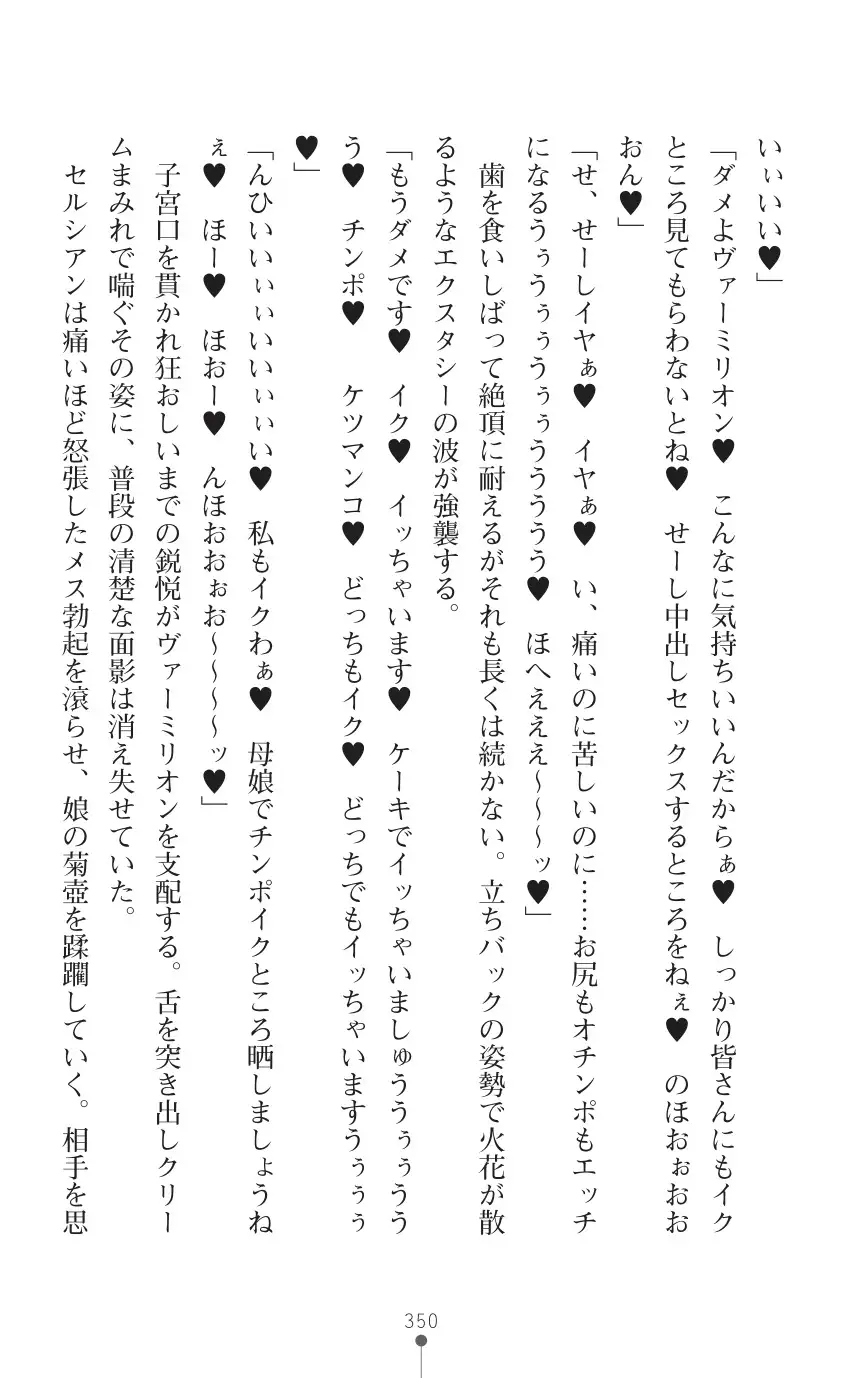 いぃいい♥」
「ダメよヴァーミリオン♥　こんなに気持ちいいんだからぁ♥　しっかり皆さんにもイク
ところ見てもらわないとね♥　せーし中出しセックスするところをねぇ♥　のほおぉおお
おん♥」
「せ、せーしイヤぁ♥　イヤぁ♥　い、痛いのに苦しいのに……お尻もオチンポもエッチ
になるうぅうぅぅうぅぅうううう♥　ほへえええ～～～ッ♥」
歯を食いしばって絶頂に耐えるがそれも長くは続かない。立ちバックの姿勢で火花が散
るようなエクスタシーの波が強襲する。
「もうダメです♥　イク♥　イッちゃいます♥　ケーキでイッちゃいましゅううぅぅうう
う♥　チンポ♥　　ケツマンコ♥　どっちもイク♥　どっちでもイッちゃいますうぅぅぅ
♥」
「んひいいぃぃいいぃぃい♥　私もイクわぁ♥　母娘でチンポイクところ晒しましょうね
ぇ♥　ほー♥　ほおー♥　んほおおぉお～～～～ッ♥」
子宮口を貫かれ狂おしいまでの鋭悦がヴァーミリオンを支配する。舌を突き出しクリー
ムまみれで喘ぐその姿に、普段の清楚な面影は消え失せていた。
セルシアンは痛いほど怒張したメス勃起を滾らせ、娘の菊壺を蹂躙していく。相手を思
350